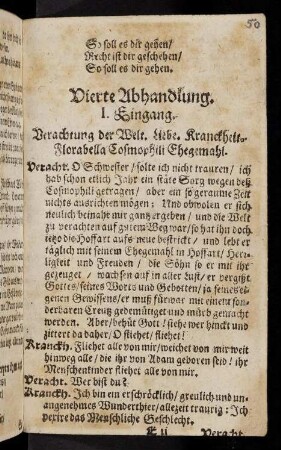 50
So soll es dir gehen/
Recht ist dir geschehen/
So soll es dir gehen.
Vierte Abhandlung.
I. Eingang.
Verachtung der Welt. Liebe. Kranckheit.
Florabella Cosmophili Ehegemahl.
Veracht. O Schwester/ solte ich nicht trauren/ ich
hab schon etlich Jahr ein stäte Sorg wegen deß
Cosmophili getragen/ aber ein so geraume Zeit
nichts ausrichten mögen: Und obwolen er sich
neulich beinahe mir gantz ergeben/ und die Welt
zu verachten auf gutem Weg war/ so hat ihn doch
itzo die Hoffart aufs neue bestrickt/ und lebt er
täglich mit seinem Ehegemahl in Hoffart/ Herr-
ligkeit und Freuden/ die Söhn so er mit ihr
gezeuget/ wachsen auf in aller Lust/ er vergißt
Gottes/ seines Worts und Gebotten/ ja seines ei-
genen Gewissens/ er muß fürwar mit einem son-
derbaren Creutz gedemütiget und mürb gemacht
werden. Aber/ behüt Gott! siehe wer hinckt und
zittert da daher/ O fliehet/ fliehet!
Kranckh. Fliehet alle von mir/ weichet von mir weit
hinweg alle/ die ihr von Adam geboren seid! ihr
Menschenkinder fliehet alle von mir.
Veracht. Wer bist du?
Kranckh. Ich bin ein erschröcklich/ greulich und un-
angenehmes Wunderthier/ allezeit traurig: Ich
verire das Menschliche Geschlecht.
Veracht.